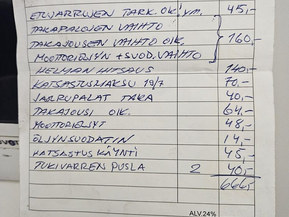 ETUJARRUJEN TARK. OIK. YM. 45,-
TAKAPALOJEN VAIHTO
TAKAJOUSEN VAIHTO OIK. 160,-
MOOTTORIÖLJYN + SUOD. VAIHTO
HELMAN HITSAUS 140,-
KATSASTUSMAKSU 19/7 70,-
JARRUPALAT TAKA 40,-
TAKAJOUSI OIK. 64,-
MOOTTORIÖLJYT 48,-
ÖLJYNSUODATIN 14,-
KATSASTUS KÄYNTI 45,-
TUKIVARREN PUSLA 2 40,-
666,-
ALV.24%